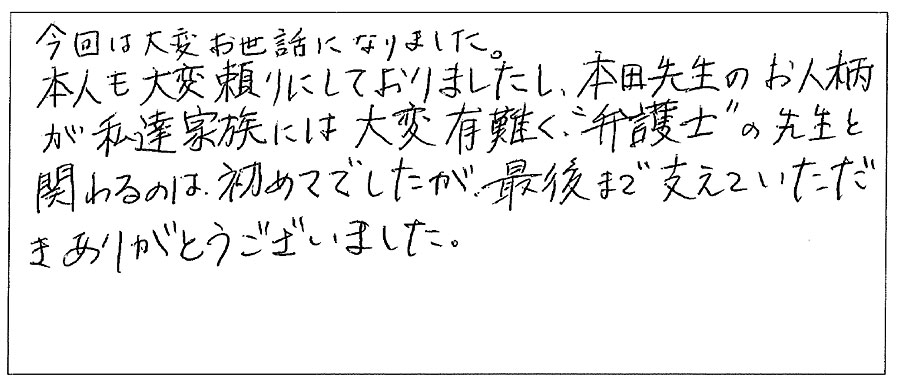 今回は大変お世話になりました。
本人も大変頼りにしておりましたし、本田先生のお人柄
が私達家族には大変有難く、"弁護士"の先生と
関わるのは、初めてでしたが、最後まで支えていただ
きありがとうございました。